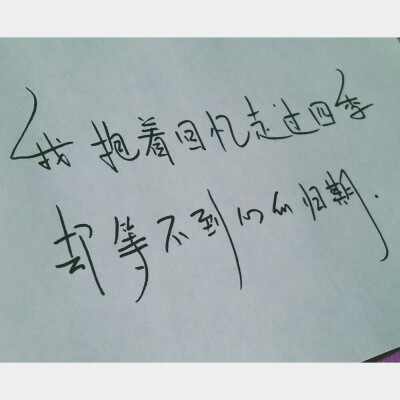 我抱着回忆走过四季
却等不到归期.